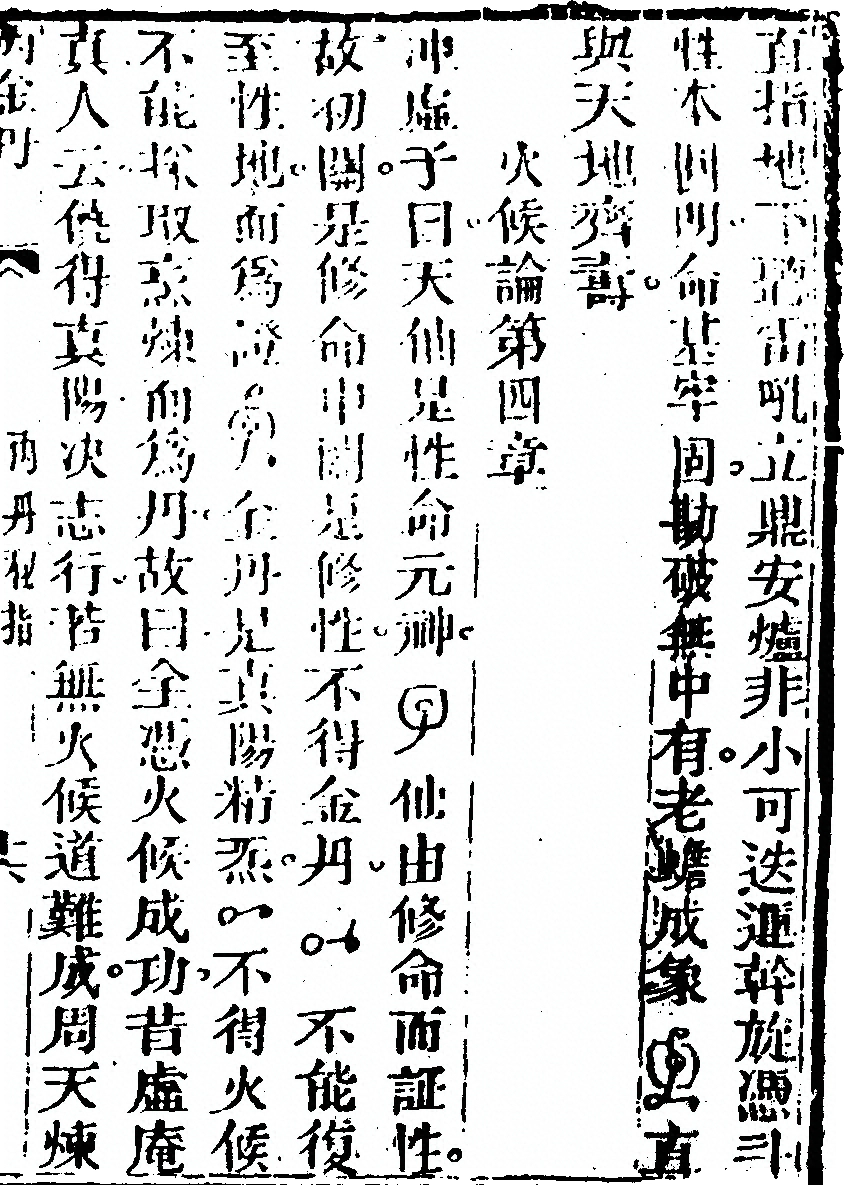 直指地下聽雷吼立鼎安爐非小可迭運幹旋憑斗
性本圓明命基牢固勘破無中有老蟾成象直
與天地齊壽
火候論第四章
冲虛子曰天仙是性命元神仙由修命而証性
故初關是修命中關是修性不得金丹不能復
至性地而爲證金丹是真陽精炁不得火候
不能採取烹煉而爲丹故曰全憑火候成功昔虛庵
真人云饒得真陽决志行若無火候道難成周天煉
丙丹秘指